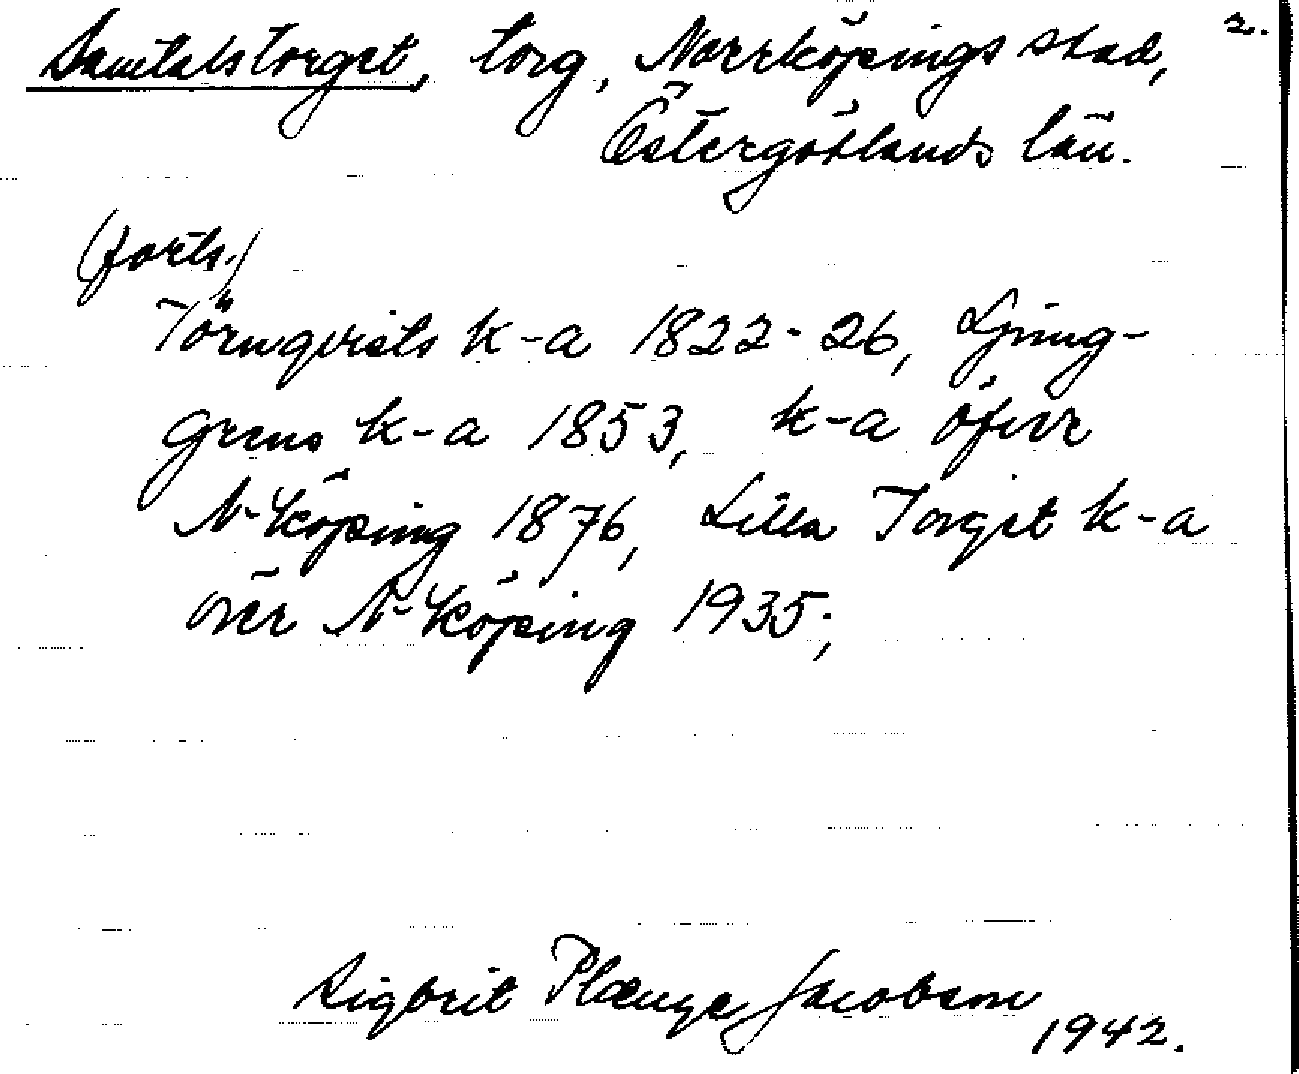 Samtalstorget, torg, Norrköpings stad, 2.
Östergötlands län.
(forts.)
Törnqvists k-a 1822-26, Ljung-
grens k-a 1853, k-a öfver
N-köping 1876, Lilla Torget k-a
över N-köping 1935;
Sigbrit Plænge Jacobson
1942.